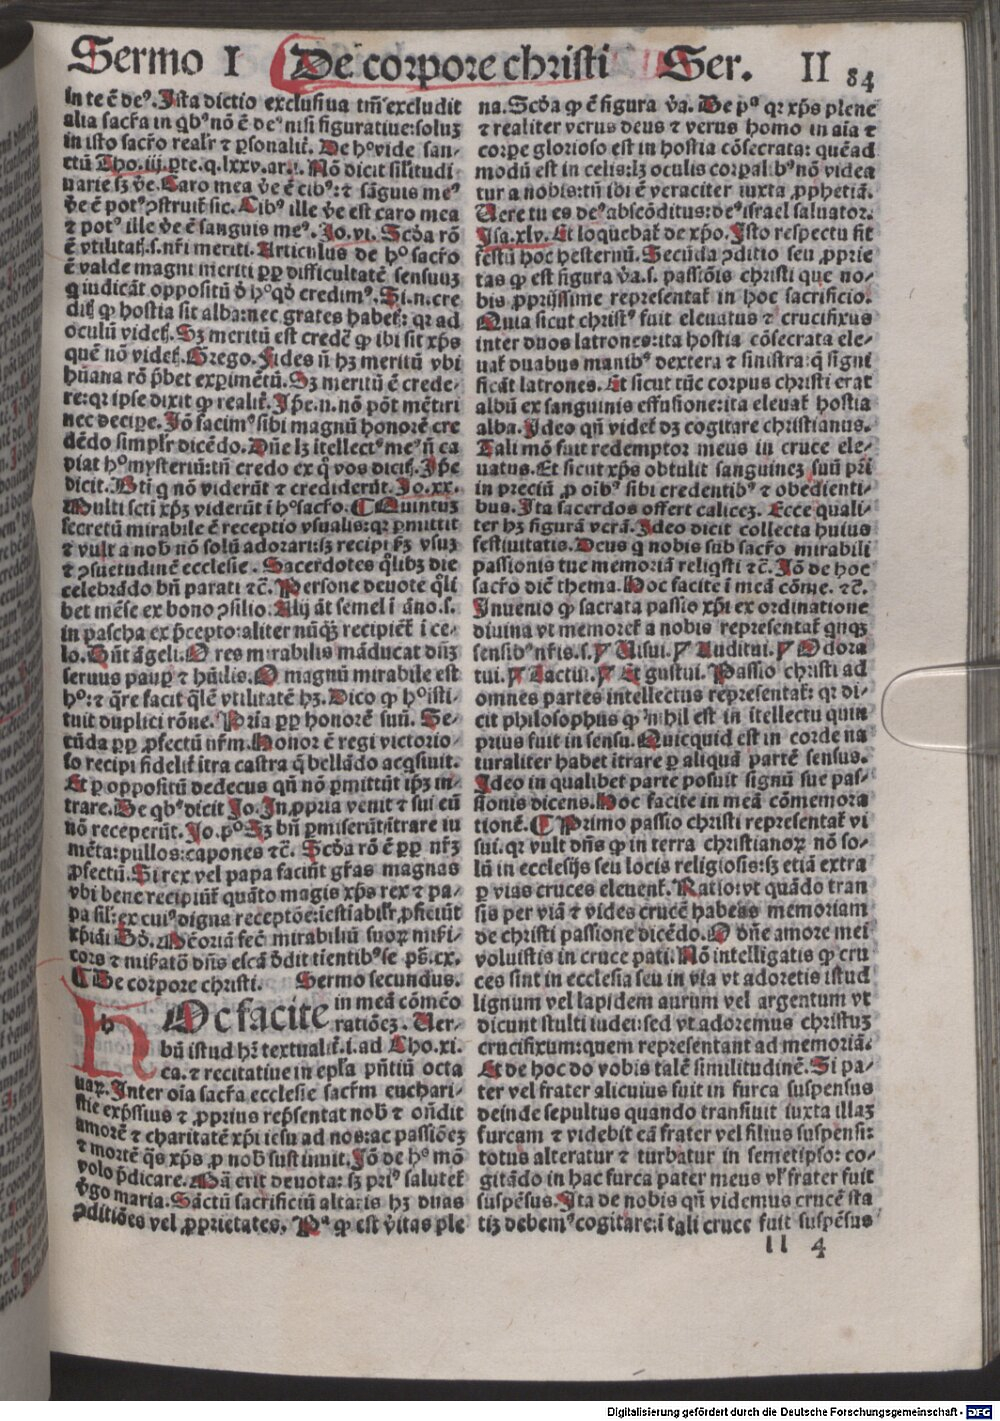 Sermo I De corpore christi Ser. II 84
in te ē deꝰ. Ista dictio exclusiua tm̄ excludit
alia sacr̄a in qbꝰ nō ē deꝰ nisi figuratiue: soluꝫ
in isto sacr̄o realr̄ ⁊ ꝑsonalit̄. De hͦ vide san-
ctū Tho. iij. ꝑte. q. lxxv. ar. i. Nō dicit silitudi
narie sꝫ v̄e. Caro mea v̄e ē cibꝰ: ⁊ sāguis meꝰ
v̄e ē potꝰ ꝯstruit̄ sic. Cibꝰ ille v̄e est caro mea
⁊ potꝰ ille v̄e ē sanguis meꝰ. Jo. vi. Scd̄a rō
ē vtilitatꝭ .s. nr̄i meriti. Articulus de hͦ sacr̄o
ē valde magni meriti ꝓp difficultatē sensuuꝫ
q iudicāt oppositū ei hͦ qd̄ credimꝰ. Si .n. cre
ditꝭ ꝙ hostia sit alba: nec grates habetꝭ: qr ad
oculū videtꝭ. Sꝫ meritū est crede ꝙ ibi sit xp̄s
quē nō videtꝭ. Grego. Fides nō hꝫ meritū vbi
hūana rō p̄bet exꝑimētū. Sꝫ meritū ē crede-
re: qr ipse dixit ꝙ realit̄. Ip̄e .n. nō pōt mētiri
nec decipe. Jō facimꝰ sibi magnū honorē cre
dēdo simplr̄ dicēdo. Dn̄e lꝫ itellectꝰ meꝰ nō ca
piat hͦ mysteriū: tn̄ credo ex q vos dicitꝭ. Ip̄e
dicit. Bt̄i q nō viderūt ⁊ crediderūt. Jo. xx.
Multi scti xp̄ꝫ viderūt i hͦ sacr̄o. ¶ Quintuꝫ
secretū mirabile ē receptio vsualis: qr ꝑmittit
⁊ vult a nob̄ nō solū adorari: sꝫ recipi fꝫ vsuꝫ
⁊ ꝯsuetudinē ecclesie. Sacerdotes qlibꝫ die
celebrādo bn̄ parati ⁊c̄. Persone deuote qli
bet mēse ex bono ꝯsilio. Alij āt semel i āno .s.
in pascha ex p̄cepto: aliter nūqꝫ recipiēt̄ i ce-
lo. Cn̄t āgeli. O res mirabilis māducat dn̄ꝫ
seruus pauꝑ ⁊ hūilis. O magnū mirabile est
hͦ: ⁊ qre facit qlē vtilitatē hꝫ. Dico ꝙ hͦ isti-
tuit duplici rōne. Pria ꝓp honorē suū. Se-
cūda ꝓp ꝓfectū nr̄m. Honor ē regi victorio-
so recipi fidelit̄ itra castra q bellādo acqsiuit.
Et ꝑ oppositū dedecus qn̄ nō ꝑmittūt ip̄ꝫ in-
trare. De qbꝰ dicit Jo. In ꝓpria venit ⁊ sui eū
nō receperūt. Jo. pͦ Sꝫ bn̄ ꝑmiserūt itrare iu
mēta: pullos: capones ⁊c̄. Scd̄a rō ē ꝓp nr̄ꝫ
ꝓfectū. Si rex vel papa faciūt gr̄as magnas
vbi bene recipiūt̄ quāto magis xp̄s rex ⁊ pa-
pa sil: ex cuiꝰ digna receptōe: iestiabilr̄ ꝓficiūt
xp̄iāi. Dd̄. Mēoriā fec̄ mirabiliū suoꝝ mis̄i-
cors ⁊ mis̄atō dn̄s escā dedit timentibꝰ se ps̄. cx.
¶ De corpore christi. Sermo secundus.
HOc facite in meā cōmēo
ratiōeꝫ. Uer-
bū istud hr̄ textualit̄ .i. ad Cho. xi.
ca. ⁊ recitatiue in epl̄a pn̄tiū octa
uaꝝ. Inter oīa sacr̄a ecclesie sacr̄m euchari-
stie exp̄ssius ⁊ ꝓprius rep̄sentat nob̄ ⁊ on̄dit
amorē ⁊ charitatē xp̄i iesu ad nos: ac passiōeꝫ
⁊ mortē qs xp̄s ꝓ nob̄ sustinuit. Jō de hͦ s mō
volo p̄dicare. Mā erit deuota: sꝫ priꝰ salutet̄
v̄go maria. Sāctū sacrificiū altaris hꝫ duas
ꝯditiōes vel ꝓprietates. Pa ꝙ est v̄itas ple
na. Scd̄a ꝙ ē figura v̄a. De pa qr xp̄s plene
⁊ realiter verus deus ⁊ verus homo in aīa ⁊
corpe glorioso est in hostia cōsecrata: quēad
modū est in celis: lꝫ oculis corpalibꝰ nō videa
tur a nobis: tn̄ ibi ē veraciter iuxta ꝓphetiā.
Uere tu es deꝰ abscōditus: deꝰ israel saluator.
Isa. xlv. Et loquebat̄ de xp̄o. Isto respectu fit
festū hoc hesternū. Secūda ꝯditio seu ꝓprie
tas ꝙ est figura v̄a .s. passiōis christi que no-
bis ꝓprijssime representat̄ in hoc sacrificio.
Quia sicut christꝰ fuit eleuatus ⁊ crucifixus
inter duos latrones: ita hostia cōsecrata ele-
uat̄ duabus manibꝰ dextera ⁊ sinistra: q signi
ficāt latrones. Et sicut tūc corpus christi erat
albū ex sanguinis effusione: ita eleuat̄ hostia
alba. Ideo qn̄ videt̄ dꝫ cogitare christianus.
Tali mō fuit redemptor meus in cruce ele-
uatus. Et sicut xp̄s obtulit sanguineꝫ suū pr̄i
in preciū ꝓ oibꝰ sibi credentibꝰ ⁊ obedienti-
bus. Ita sacerdos offert caliceꝫ. Ecce quali-
ter hꝫ figurā verā. Ideo dicit collecta huius
festiuitatis. Deus q nobis sub sacr̄o mirabili
passionis tue memoriā reliqsti ⁊c̄. Jō de hoc
sacr̄o dic̄ thema. Hoc facite i meā cōme. ⁊c̄.
Inuenio ꝙ sacrata passio xp̄i ex ordinatione
diuina vt memoret̄ a nobis representat̄ qnqꝫ
sensibꝰ nr̄is .s. ¶ Uisui. ¶ Auditui. ¶ Odora
tui. ¶ Tactui. ¶ Et gustui. Passio christi ad
omnes partes intellectus representat̄: qr di-
cit philosophus ꝙ nihil est in itellectu quin
prius fuit in sensu. Quicquid est in corde na
turaliter habet itrare ꝑ aliquā partē sensus.
Ideo in qualibet parte posuit signū sue pas-
sionis dicens. Hoc facite in meā cōmemora
tionē. ¶ Primo passio christi representat̄ vi
sui. qr vult dn̄s ꝙ in terra christianoꝝ nō so-
lū in ecclesijs seu locis religiosis: sꝫ etiā extra
ꝑ vias cruces eleuent̄. Ratio: vt quādo tran
sis per viā ⁊ vides crucē habeas memoriam
de christi passione dicēdo. O dn̄e amore mei
voluistis in cruce pati. Nō intelligatis ꝙ cru
ces sint in ecclesia seu in via vt adoretis istud
lignum vel lapidem aurum vel argentum vt
dicunt stulti iudei: sed vt adoremus christuꝫ
crucifixum: quem representant ad memoriā.
Et de hoc do vobis talē similitudinē. Si pa-
ter vel frater alicuius fuit in furca suspensus
deinde sepultus quando transiuit iuxta illaꝫ
furcam ⁊ videbit eā frater vel filius suspensi:
totus alteratur ⁊ turbatur in semetipso: co-
gitādo in hac furca pater meus vl̄ frater fuit
suspēsus. Ita de nobis qn̄ videmus crucē sta
tiꝫ debemꝰ cogitare: i tali cruce fuit suspēsus
ll 4
Digitalisierung gefördert durch die Deutsche Forschungsgemeinschaft - DFG